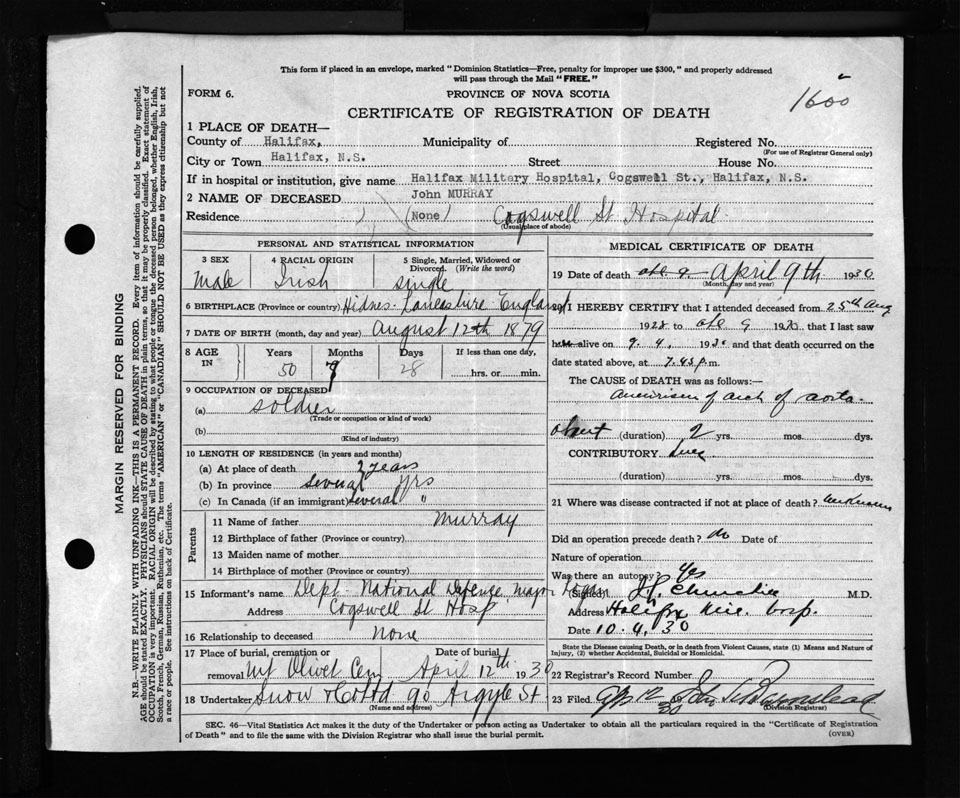 This form if placed in an envelope, marked "Dominion Statistics—Free, penalty for improper use $300," and properly addressed
will pass through the Mail "FREE."
FORM 6.
PROVINCE OF NOVA SCOTIA
1600
CERTIFICATE OF REGISTRATION OF DEATH
1 PLACE OF DEATH—
County of Halifax, Municipality of Registered No.
(For use of Registrar General only)
City or Town Halifax, N.S. Street House No.
If in hospital or institution, give name Halifax Military Hospital, Cogswell St., Halifax, N.S.
2 NAME OF DECEASED John MURRAY
Residence (None) Cogswell St Hospital
(Usual place of abode)
PERSONAL AND STATISTICAL INFORMATION
3 SEX 4 RACIAL ORIGIN 5 Single, Married, Widowed or
Divorced. (Write the word)
Male Irish single
6 BIRTHPLACE (Province or country) Hidnes Lancashire England
7 DATE OF BIRTH (month, day and year) August 12th 1879
8 AGE IN Years Months Days If less than one day,
50 7 28 hrs. or min.
9 OCCUPATION OF DECEASED
(a) soldier
(Trade or occupation or kind of work)
(b)
(Kind of industry)
10 LENGTH OF RESIDENCE (in years and months)
(a) At place of death 2 years
(b) In province several yrs
(c) In Canada (if an immigrant) several "
Parents
11 Name of father Murray
12 Birthplace of father (Province or country)
13 Maiden name of mother
14 Birthplace of mother (Province or country)
15 Informant's name Dept National Defence Major
Address Cogswell St Hosp
16 Relationship to deceased None
17 Place of burial, cremation or Date of burial
removal Mt Olivet Cem April 12th 1930
18 Undertaker Snow & Co Ltd 90 Argyle St
(Name and address)
MEDICAL CERTIFICATE OF DEATH
19 Date of death April 9th 1930
(Month, day and year)
20 I HEREBY CERTIFY that I attended deceased from 25th Aug
1928 to 9 1930 that I last saw
alive on 9. 4. 1930 and that death occurred on the
date stated above, at 7.45 p.m.
The CAUSE OF DEATH was as follows:—
Aneurism of arch of aorta.
about (duration) 2 yrs. mos. dys.
CONTRIBUTORY
(duration) yrs. mos. dys.
21 Where was disease contracted if not at place of death? unknown
Did an operation precede death? No Date of
Nature of operation
Was there an autopsy? Yes
(Signed) M.D.
Address Halifax Mil. Hosp.
Date 10. 4. 30
State the Disease causing Death, or in death from Violent Causes, state (1) Means and Nature of
Injury, (2) whether Accidental, Suicidal or Homicidal.
22 Registrar's Record Number
23 Filed
(Division Registrar)
SEC. 46—Vital Statistics Act makes it the duty of the Undertaker or person acting as Undertaker to obtain all the particulars required in the "Certificate of Registration
of Death" and to file the same with the Division Registrar who shall issue the burial permit.
(OVER)
MARGIN RESERVED FOR BINDING
N.B.—WRITE PLAINLY WITH UNFADING INK—THIS IS A PERMANENT RECORD. Every item of information should be carefully supplied.
AGE should be stated EXACTLY. PHYSICIANS should STATE CAUSE OF DEATH in plain terms, so that it may be properly classified. Exact statement of
OCCUPATION is very important. RACIAL ORIGIN will be described by stating to what people or tongue the deceased person belonged, whether English, Irish,
Scotch, French, German, Russian, Ruthenian, etc. The terms "AMERICAN" or "CANADIAN" SHOULD NOT BE USED as they express citizenship but not
a race or people. See instructions on back of Certificate.